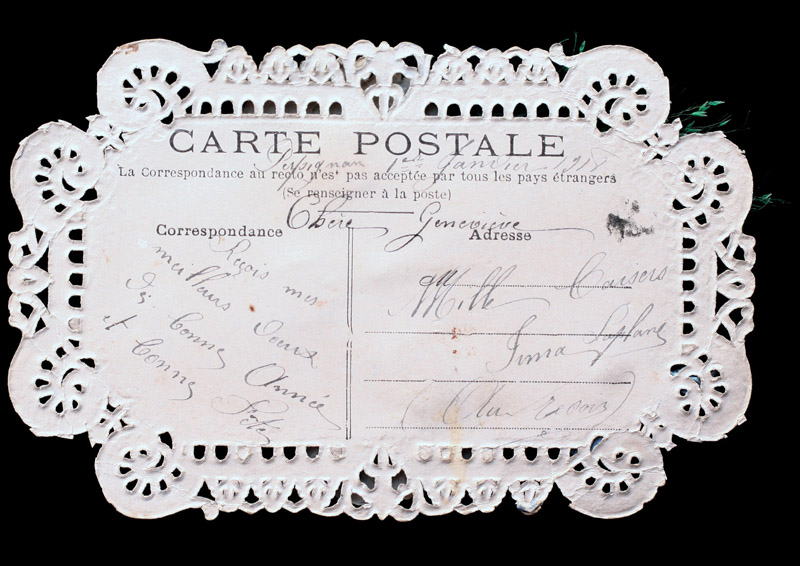 CARTE POSTALE
Perpignan 1er Janvier 1918
La Correspondance au recto n'est pas acceptée par tous les pays étrangers
(Se renseigner à la poste)
Chère Geneviève
Correspondance
Reçois mes
meilleurs
bonne Année
et bonne
Fête
Adresse
Mlle